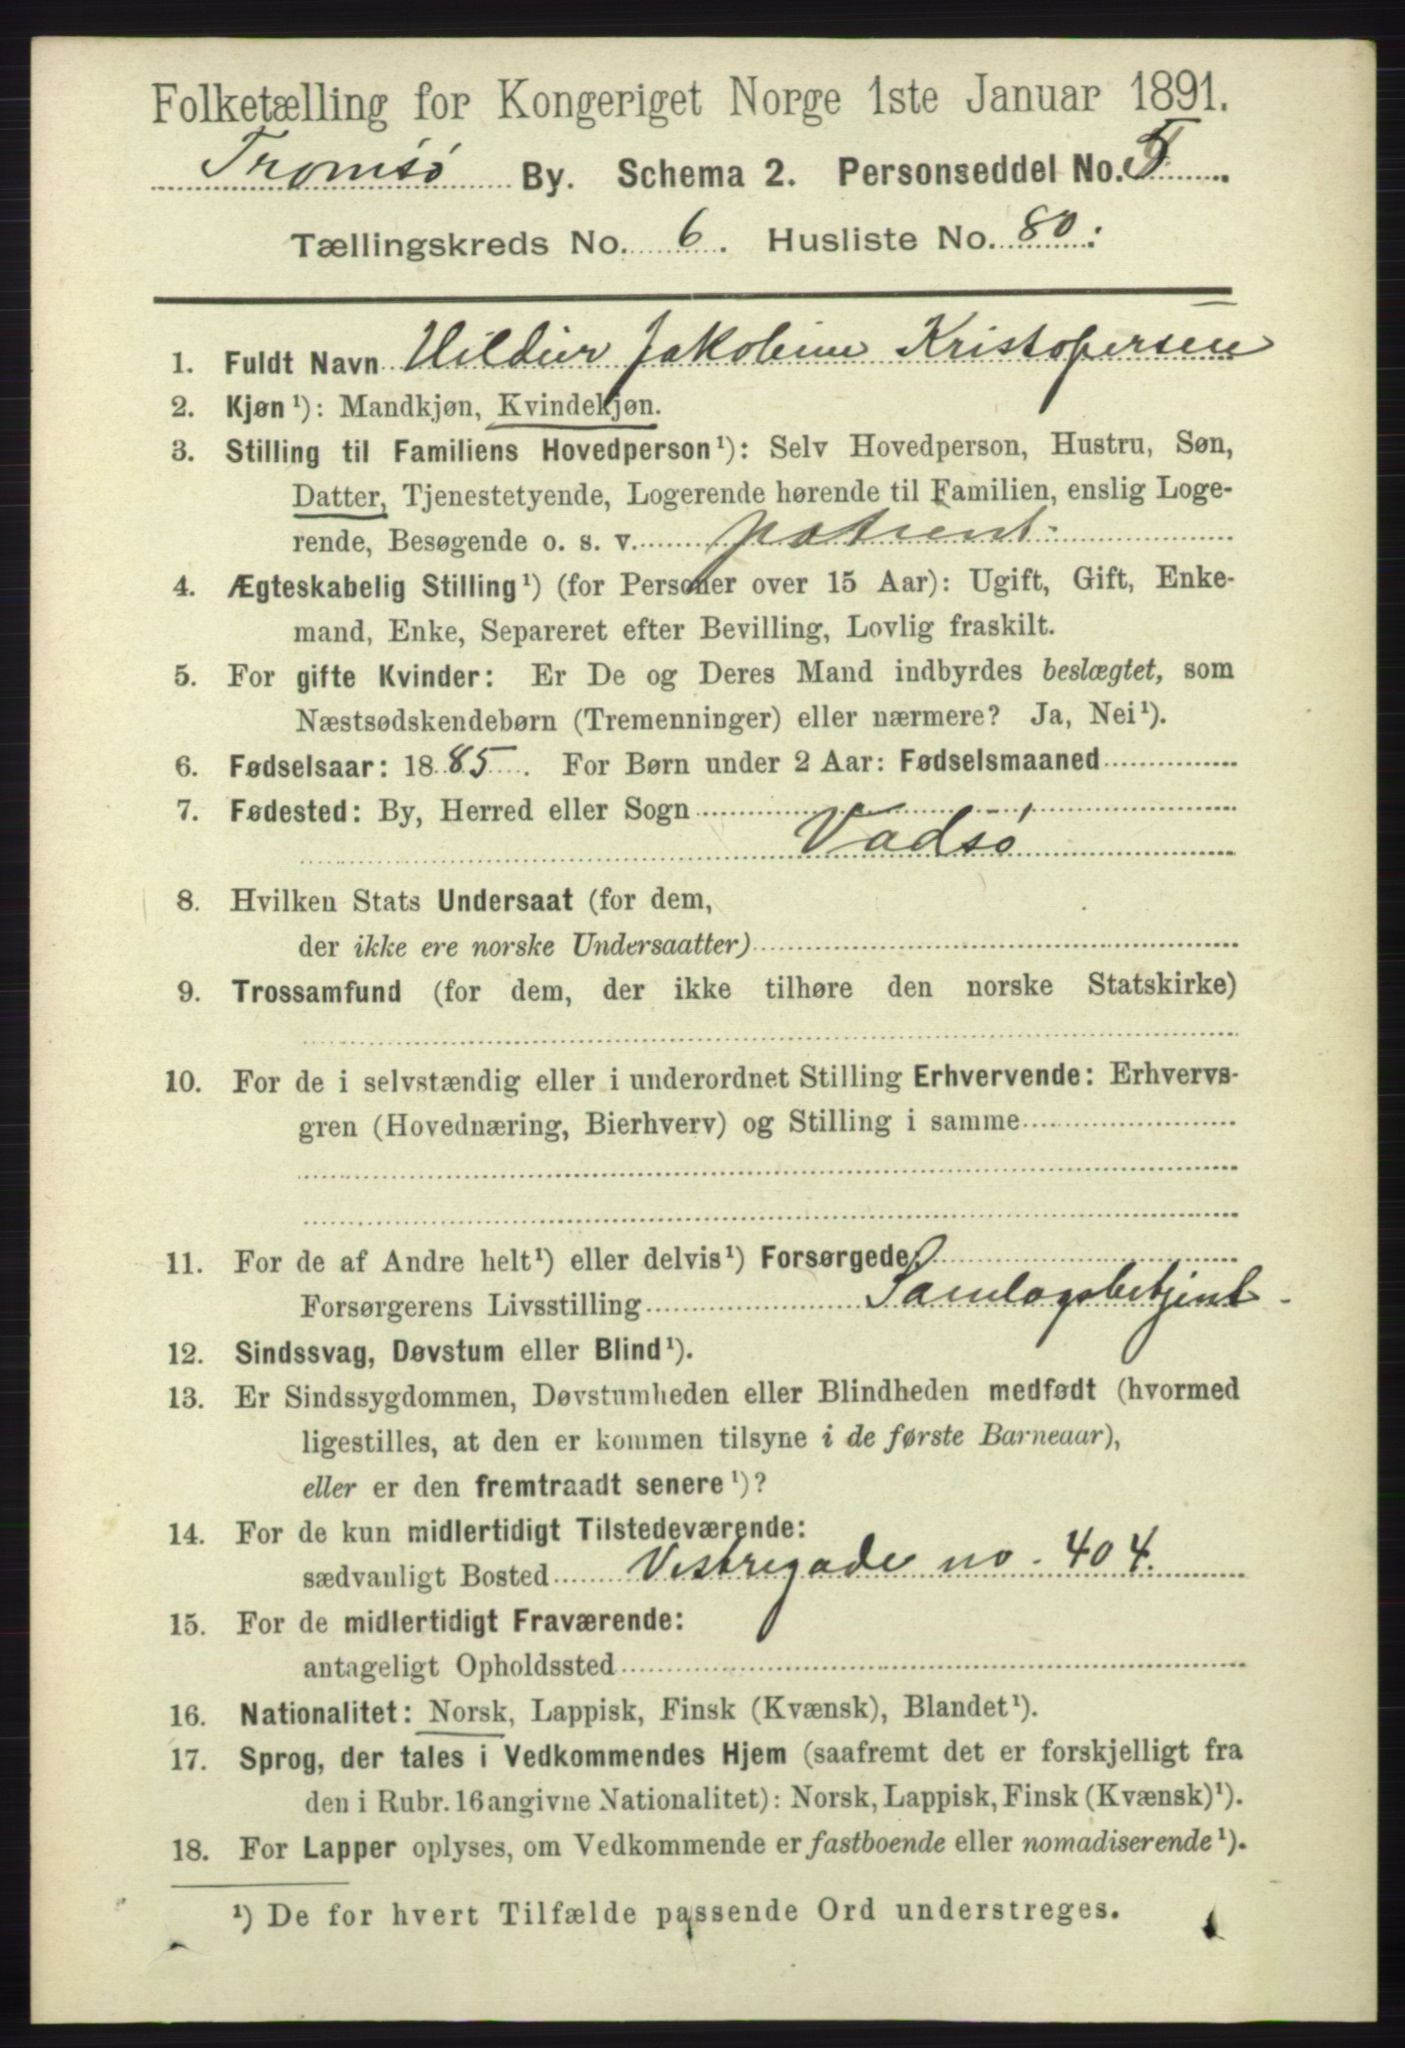 Folketælling for Kongeriget Norge 1ste Januar 1891.
Tromsø By. Schema 2. Personseddel No. 5
Tællingskreds No. 6. Husliste No. 80.
1. Fuldt Navn Hildur Jakobine Kristopersen
2. Kjøn¹): Mandkjøn, Kvindekjøn.
3. Stilling til Familiens Hovedperson¹): Selv Hovedperson, Hustru, Søn,
Datter, Tjenestetyende, Logerende hørende til Familien, enslig Loge-
rende, Besøgende o. s. v. patient.
4. Ægteskabelig Stilling¹) (for Personer over 15 Aar): Ugift, Gift, Enke-
mand, Enke, Separeret efter Bevilling, Lovlig fraskilt.
5. For gifte Kvinder: Er De og Deres Mand indbyrdes beslægtet, som
Næstsødskendebørn (Tremenninger) eller nærmere? Ja, Nei¹).
6. Fødselsaar: 1885. For Børn under 2 Aar: Fødselsmaaned
7. Fødested: By, Herred eller Sogn
Vadsø
8. Hvilken Stats Undersaat (for dem,
der ikke ere norske Undersaatter)
9. Trossamfund (for dem, der ikke tilhøre den norske Statskirke)
10. For de i selvstændig eller i underordnet Stilling Erhvervende: Erhvervs-
gren (Hovednæring, Bierhverv) og Stilling i samme
11. For de af Andre helt¹) eller delvis¹) Forsørgede:
Forsørgerens Livsstilling Samlagsbetjent
12. Sindssvag, Døvstum eller Blind¹).
13. Er Sindssygdommen, Døvstumheden eller Blindheden medfødt (hvormed
ligestilles, at den er kommen tilsyne i de første Barneaar),
eller er den fremtraadt senere¹)?
14. For de kun midlertidigt Tilstedeværende:
sædvanligt Bosted Vestregade no. 404.
15. For de midlertidigt Fraværende:
antageligt Opholdssted
16. Nationalitet: Norsk, Lappisk, Finsk (Kvænsk), Blandet¹).
17. Sprog, der tales i Vedkommendes Hjem (saafremt det er forskjelligt fra
den i Rubr. 16 angivne Nationalitet): Norsk, Lappisk, Finsk (Kvænsk)¹).
18. For Lapper oplyses, om Vedkommende er fastboende eller nomadiserende¹).
¹) De for hvert Tilfælde passende Ord understreges.